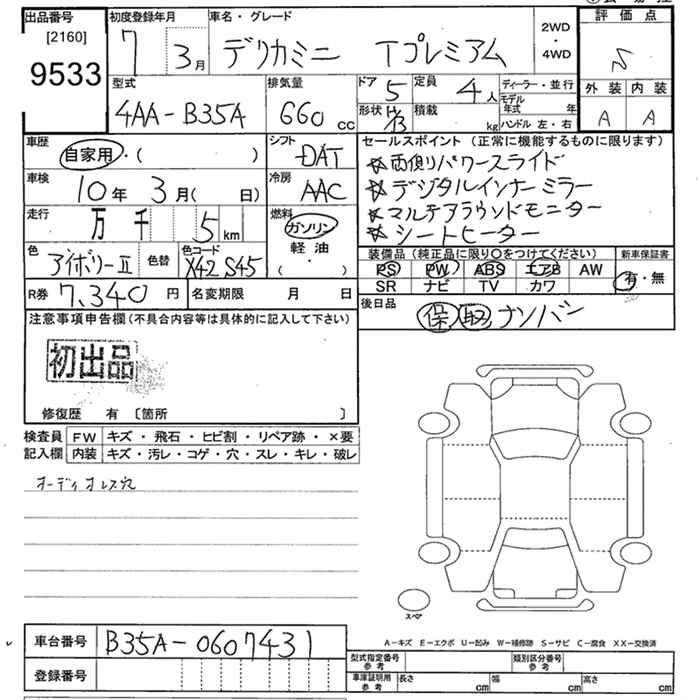 出品番号 初度登録年月 車名・グレード 2WD・4WD 評価点
[2160]
9533 7 3月 デリカミニ Tプレミアム S
型式 排気量 ドア 5 定員 4人 ディーラー・並行 外装 内装
4AA-B35A 660cc 形状 積載 kg モデル年式 年 ハンドル 左・右 A A
車歴 自家用・( ) シフト DAT
セールスポイント(正常に機能するものに限ります)
☆両側パワースライド
車検 10年 3月( 日) 冷房 AAC
☆デジタルインナーミラー
☆マルチアラウンドモニター
走行 万 千 5km 燃料 ガソリン・軽油・( )
☆シートヒーター
色 アイボリーII 色替 色コード X42 S45
装備品(純正品に限り○をつけてください) 新車保証書
PS PW ABS エアB AW 有・無
SR ナビ TV カワ
R券 7,340円 名変期限 月 日
後日品 保 取 ナンバン
注意事項申告欄(不具合内容等は具体的に記入して下さい)
初出品
修復歴 有 〔箇所 〕
検査員 FW キズ・飛石・ヒビ割・リペア跡・×要
記入欄 内装 キズ・汚レ・コゲ・穴・スレ・キレ・破レ
オーディオレス穴
スペア
車台番号 B35A-0607431
A-キズ E-エクボ U-凹み W-補修跡 S-サビ C-腐食 XX-交換済
登録番号
型式指定番号 参考 類別区分番号 参考
車庫証明用 参考 長さ cm 幅 cm 高さ cm